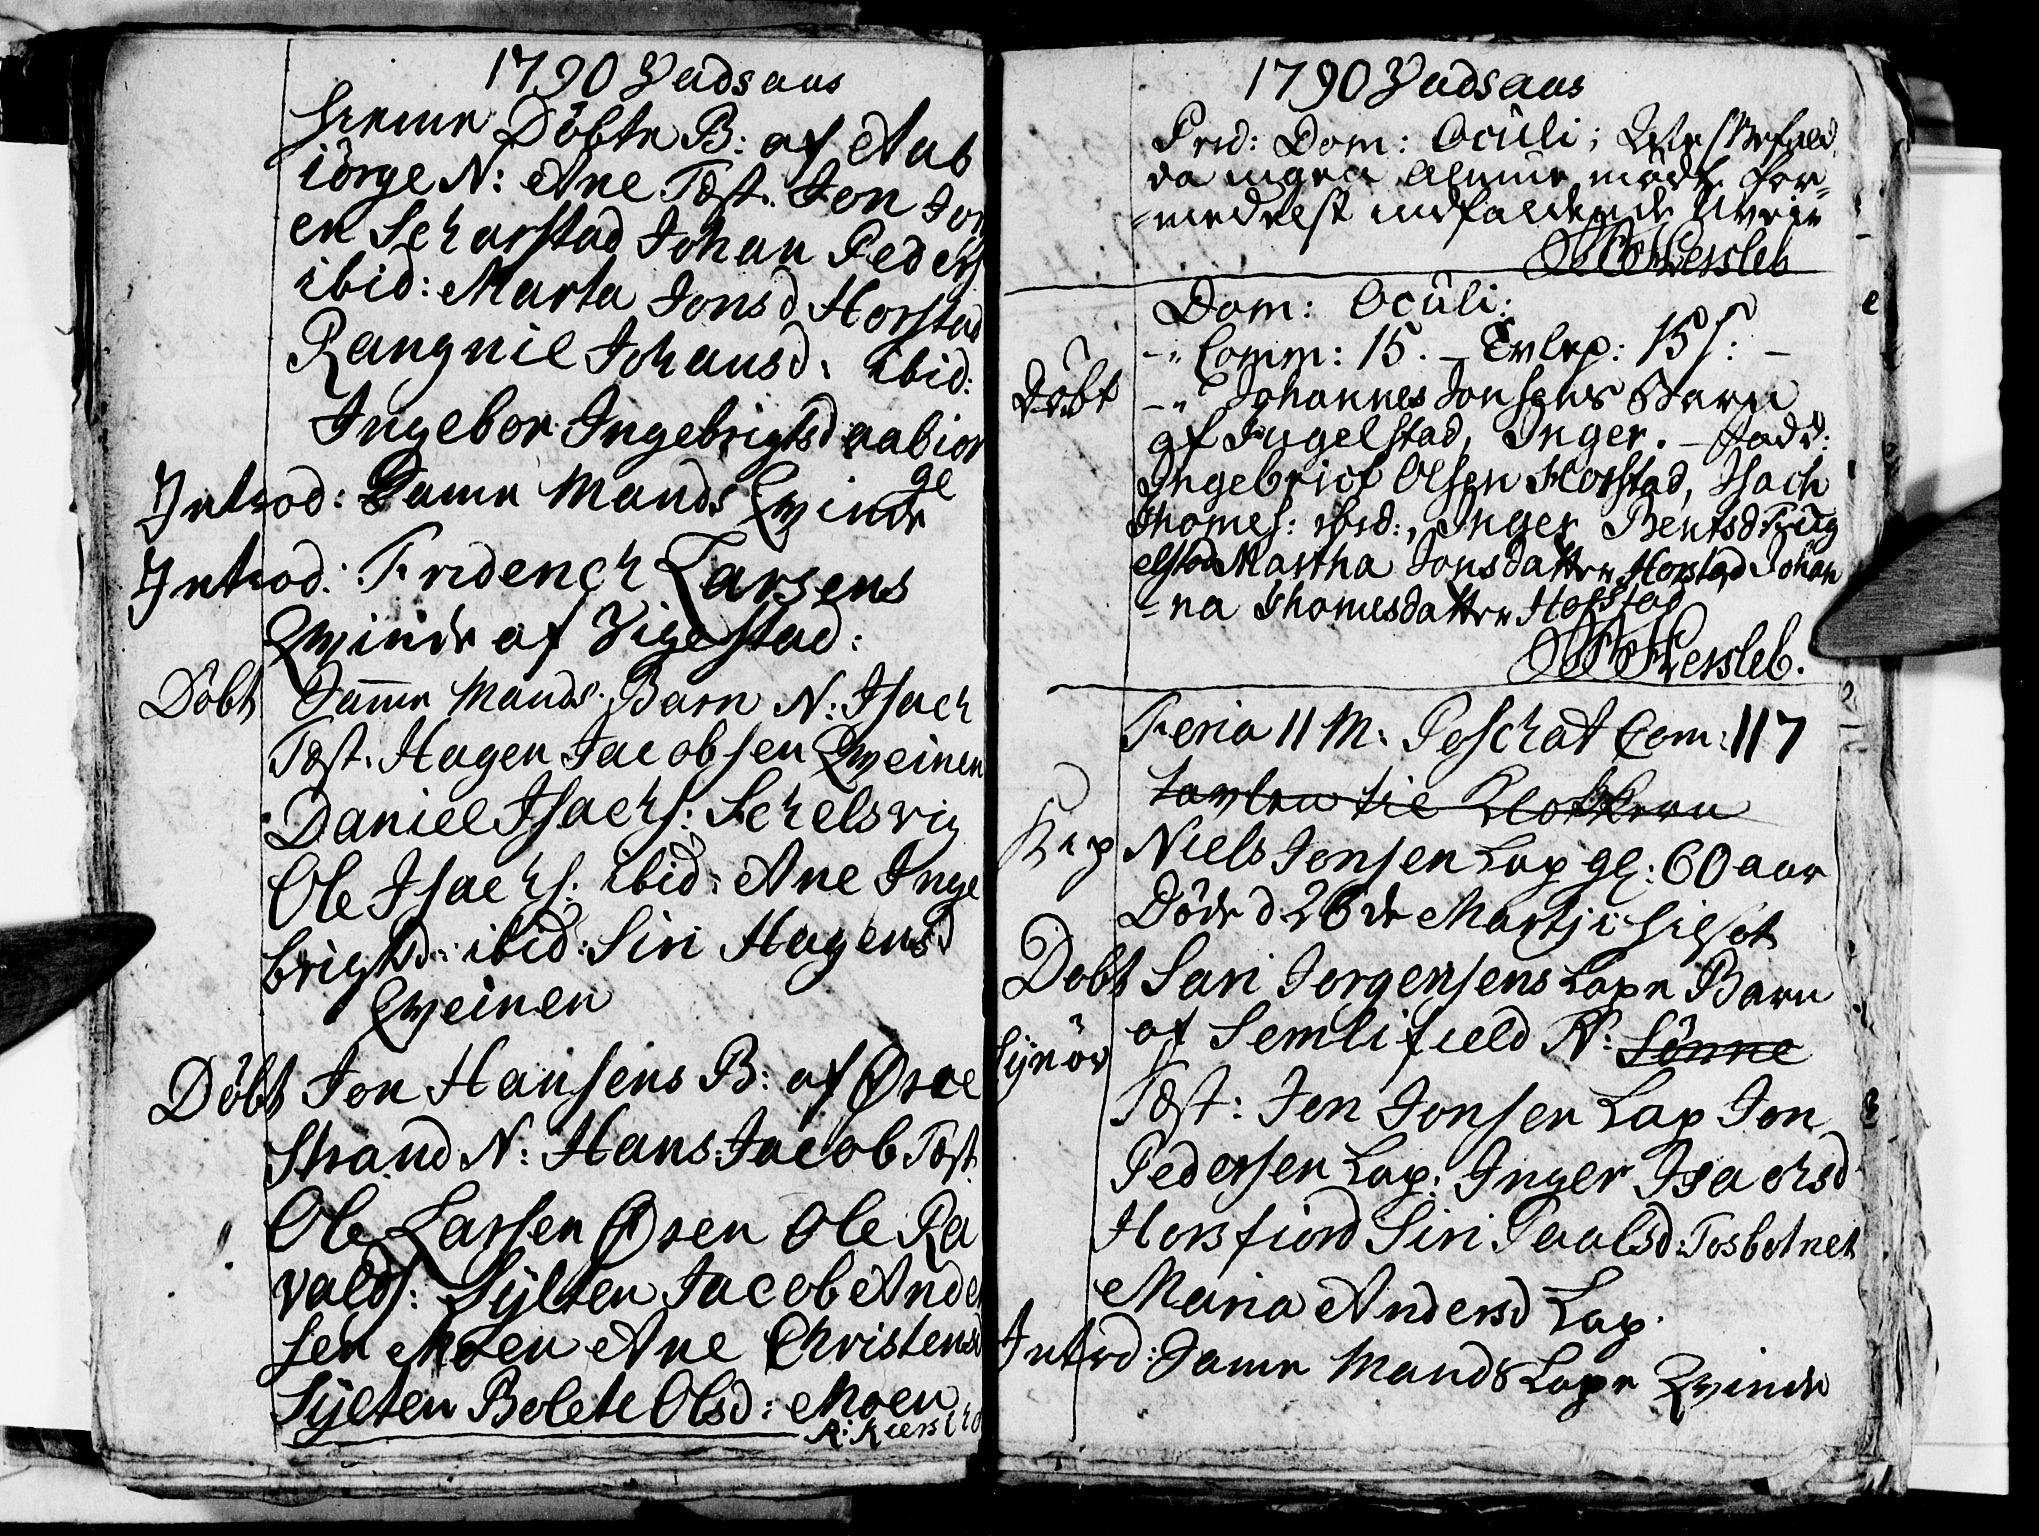 1790 Vadsaas
hieme Döbte B: af Aab
iörge N: Ane Tæst. Jon Jon
en Scharstad Johan Peders
ibid: Marta Jonsd Horstad
Rangnil Johansd: ibid:
Ingebor Ingebrigtsd aabior
ge
Introd: Samme Mands Qvinde
Introd: Friderich Larsens
Qvinde af Vigestad:
Döbt Samme Mands Barn N: Isach
Tæst. Hagen Jacobsen Qveinen
Daniel Isachs: Schelsvig
Ole Isachs: ibid: Ane Inge
brigtsd: ibid: Siri Hagensd
Qveinen
Döbt Jon Hansens B: af Øræ
Strand N: Hans Jacob Tæst
Ole Larsen Øren Ole Ra
valds: Sÿlten Jacob Ander
sen Moen Ane Christensd
Sÿlten Bolete Olsd: Moen
1790 Vadsaas
Prid: Dom: Oculi;
da ingen Almue mödte for=
=medelst indfaldende Uveir
Hersleb
Dom: Oculi:
-" Comm: 15. - Tvlep: 15 s: -
Döbt -" Johannes Jonsens Barn
af Fugelstad, Inger. - Fadd:
Ingebrict Olsen Horstad, Isach
Thomes: ibid:, Inger Bentsd Fug
elstad Martha Jonsdatter Horstad Johan
=na Thomesdatter Horstad
Hersleb.
Feria II M: Paschat Com: 117
tavlen til Klokkeren
Niels Jonsen Lap gl: 60 aar
Döde d 26de Martji
Döbt Sari Jorgensens Lapn Barn
Synöv af Semlifield N: Sönne
Tæst: Jon Jonsen Lap Jon
Pedersen Lap: Inger Isachsd
Horsfiord Siri Paalsd: Tosbotnet
Maria Andersd Lap.
Introd: Samme Mands Lapn Qvinde